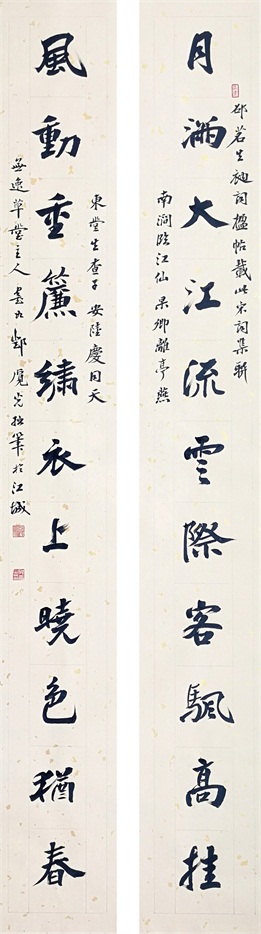 邵茗生衲詞楹帖載此宋詞集聯
月滿大江流雲際客颿高挂
南澗臨江仙 杲卿離亭燕
東堂生查子 安陸慶同天
風動重簾繡衣上曉色猶春
無逸草堂主人 拙筆於江城